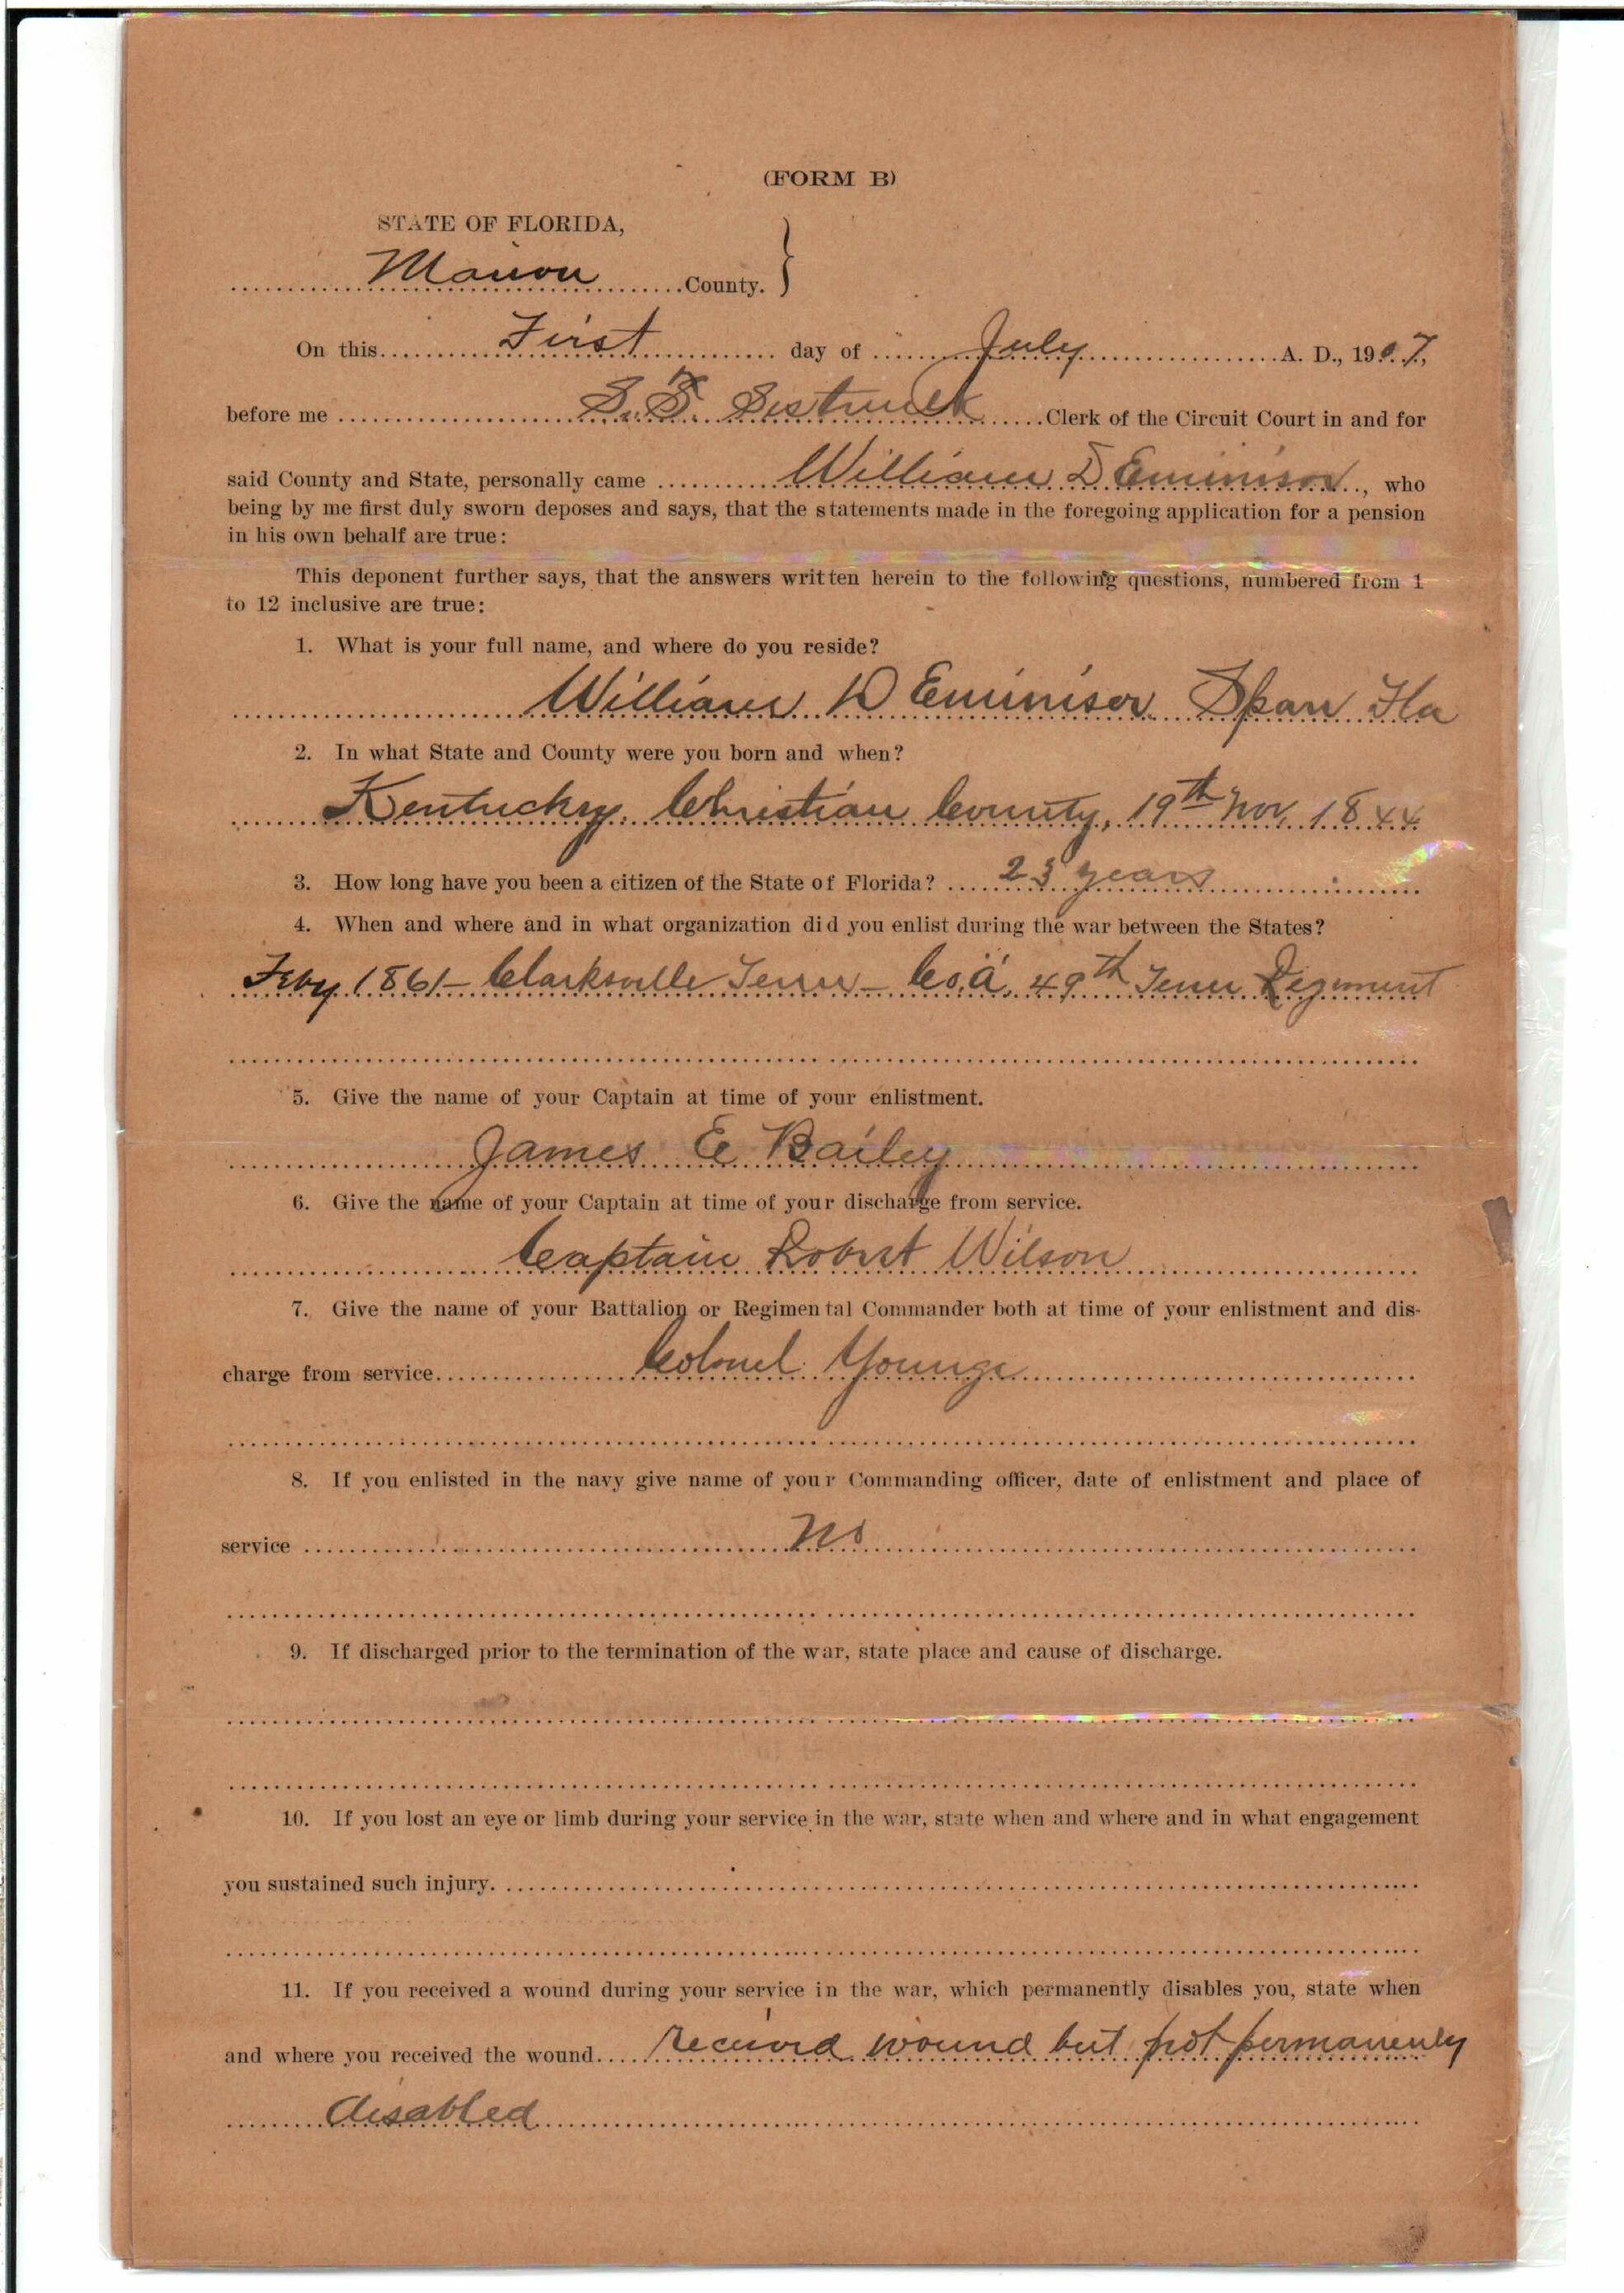 (FORM B)
STATE OF FLORIDA,
Marion County.
On this First day of July A. D., 1907,
before me S. T. Sistrunk Clerk of the Circuit Court in and for
said County and State, personally came William D Eminisor, who
being by me first duly sworn deposes and says, that the statements made in the foregoing application for a pension
in his own behalf are true:
This deponent further says, that the answers written herein to the following questions, numbered from 1
to 12 inclusive are true:
1. What is your full name, and where do you reside?
William D Eminisor Sparr Fla
2. In what State and County were you born and when?
Kentucky, Christian County, 19th Nov, 1844
3. How long have you been a citizen of the State of Florida? 23 years
4. When and where and in what organization did you enlist during the war between the States?
Feby 1861 - Clarksville Tenn - Co. A. 49th Tenn Regiment
5. Give the name of your Captain at time of your enlistment.
James E Bailey
6. Give the name of your Captain at time of your discharge from service.
Captain Robert Wilson
7. Give the name of your Battalion or Regimental Commander both at time of your enlistment and dis-
charge from service. Colonel Younge
8. If you enlisted in the navy give name of your Commanding officer, date of enlistment and place of
service No
9. If discharged prior to the termination of the war, state place and cause of discharge.
10. If you lost an eye or limb during your service in the war, state when and where and in what engagement
you sustained such injury.
11. If you received a wound during your service in the war, which permanently disables you, state when
and where you received the wound. received wound but not permanently
disabled